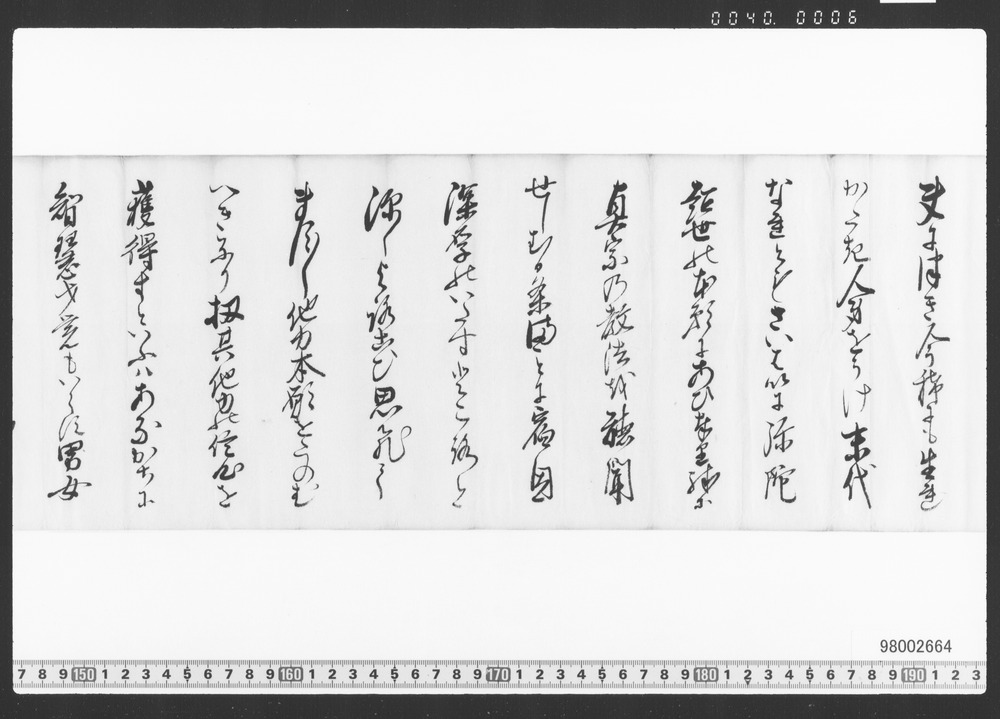 0040. 0006
夫につき今稀にも生れ
かたき人身をうけ末代
なれともさいはいに弥陀
超世の本願にあひ
真宗乃教法越聴聞
せしむる条まことに宿因
深厚のいたすところと
深くよろこひ思
他力本願をたのむ
へきなり扨其他力の信心を
獲得すといふハあなかちに
智慧才覚もいらす男女
98002664
7 8 9 150 1 2 3 4 5 6 7 8 9 160 1 2 3 4 5 6 7 8 9 170 1 2 3 4 5 6 7 8 9 180 1 2 3 4 5 6 7 8 9 190 1 2 3